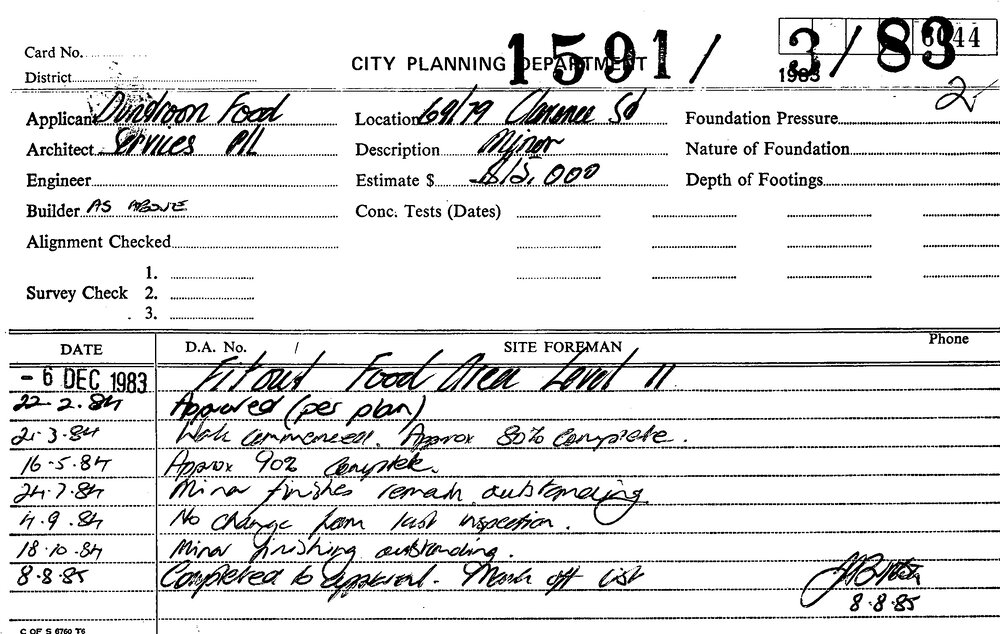 Card No.
District
CITY PLANNING DEPARTMENT
1591/3/83
6044
1983
2
Applicant Dungroon Food
Location 69/79 Clarence St
Foundation Pressure
Architect Services P/L
Description Minor
Nature of Foundation
Engineer
Estimate $ $15,000
Depth of Footings
Builder AS ABOVE
Conc. Tests (Dates)
Alignment Checked
1.
Survey Check 2.
3.
DATE D.A. No. / SITE FOREMAN Phone
- 6 DEC 1983 Fitout Food Area Level 11
22-2.84 Approved (per plan)
21.3.84 Work commenced. Approx 80% Complete.
16.5.84 Approx 90% Complete.
24.7.84 Minor finishes remain outstanding
4.9.84 No change from last inspection.
18.10.84 Minor finishing outstanding.
8.8.85 Completed to approval. Mark off list
8.8.85
C OF S 6760 T6